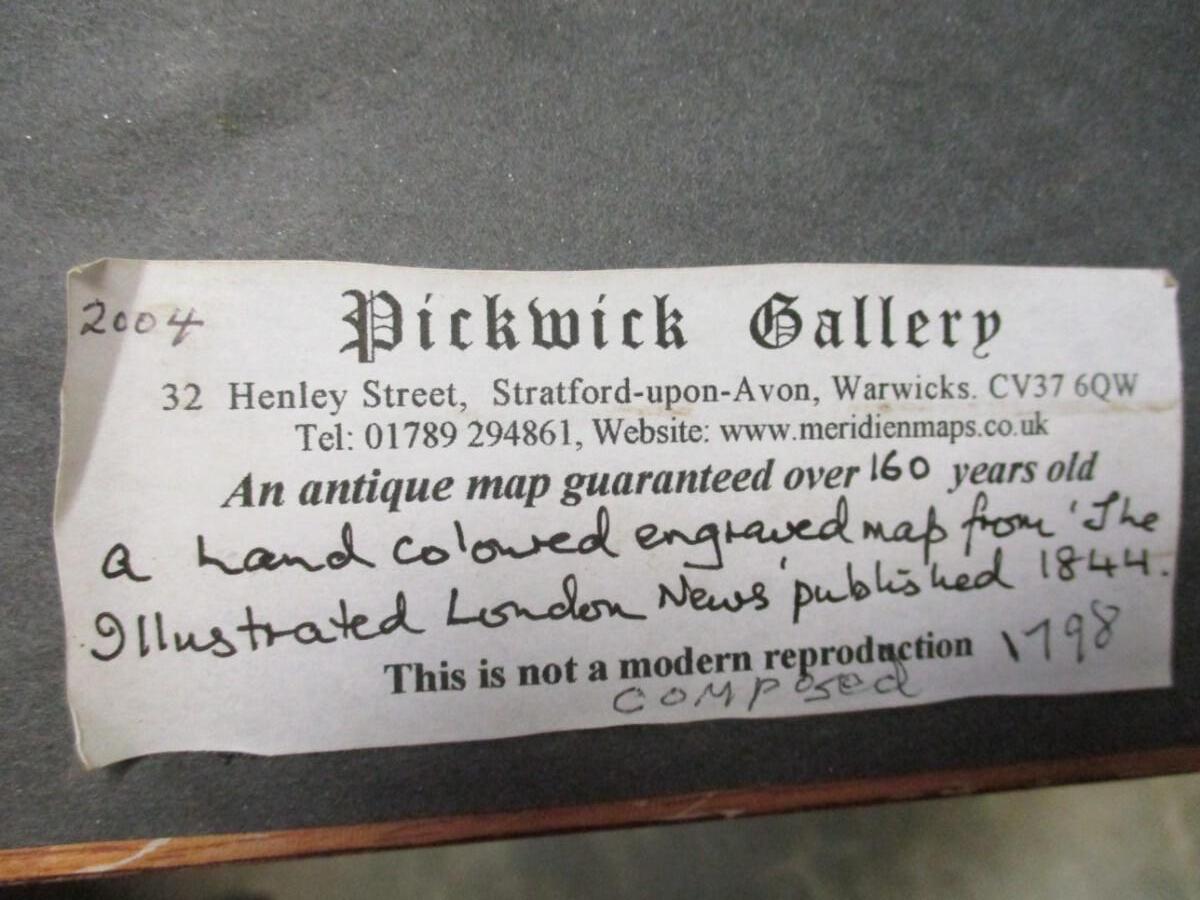 2004
Pickwick Gallery
32 Henley Street, Stratford-upon-Avon, Warwicks. CV37 6QW
Tel: 01789 294861, Website: www.meridienmaps.co.uk
An antique map guaranteed over 160 years old
a hand coloured engraved map from 'The
Illustrated London News' published 1844.
This is not a modern reproduction 1798
composed